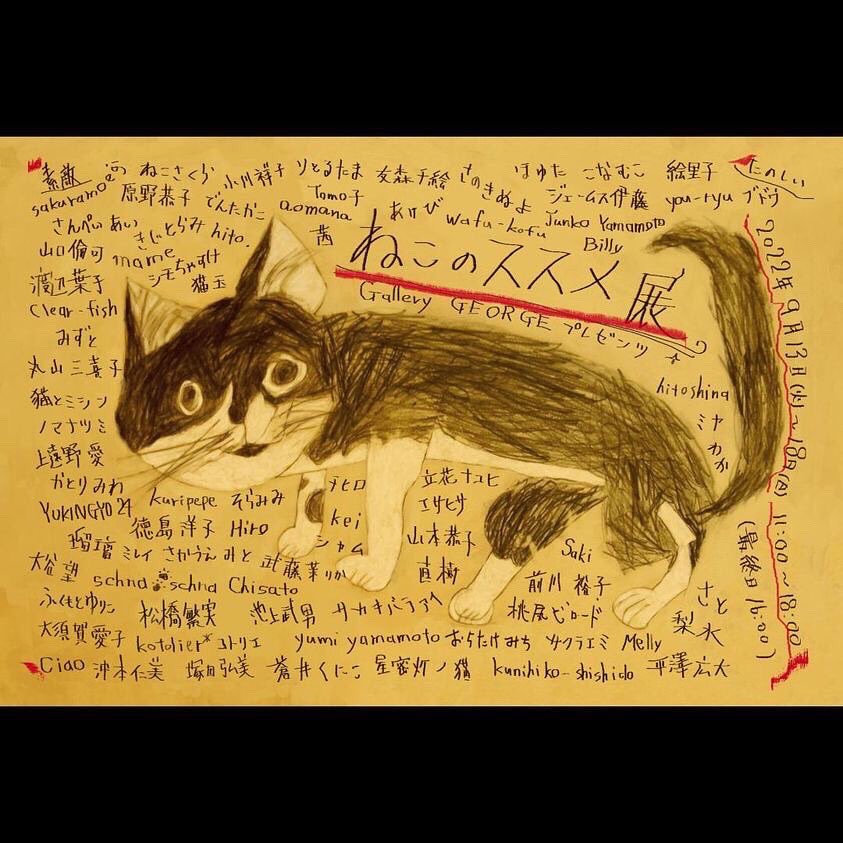 素敵
たのしい
sakuramoe
ねこさくら
小川祥子
りとるたま
女森手絵
さのきぬよ
ほゆた
こなむこ
絵里子
原野恭子
でんたかこ
Tomo子
aomana
茜
あけび
wafu-kofu
ジェームス伊藤
you-ryu
ブドウ
Junko Yamamoto
Billy
さんぺい あい
きにとらみ
hito.
山口倫可
mame
シモちゃすけ
猫玉
ねこのススメ展
Gallery GEORGE プレゼンツ
渡辺葉子
Clear-fish
みずと
丸山三喜子
猫とミシン
ノマナツミ
上遠野 愛
かとりみわ
hitoshina
ミヤカガ
YUKINGYO 24
kuripepe
そらみみ
徳島洋子
Hiro
kei
シャム
立花ナユヒ
エサヒサ
山本恭子
直樹
ミレイ
さかうえみと
武藤茉りか
大谷 望
schna schna
Chisato
Saki
前川 裕子
桃尻ビロード
ふくもとゆりこ
松橋繁実
池上武男
サカキバラアヘ
さと
梨水
大須賀愛子
kotolier*コトリエ
yumi yamamoto
おらたけみち
サクラエミ
Melly
Ciao
沖本仁美
塚田弘美
蒼井くにこ
星密灯ノ猫
kunihiko-shishido
平澤広大
2022年9月13日(火)~18日(日) 11:00~18:00
(最終日16:00)